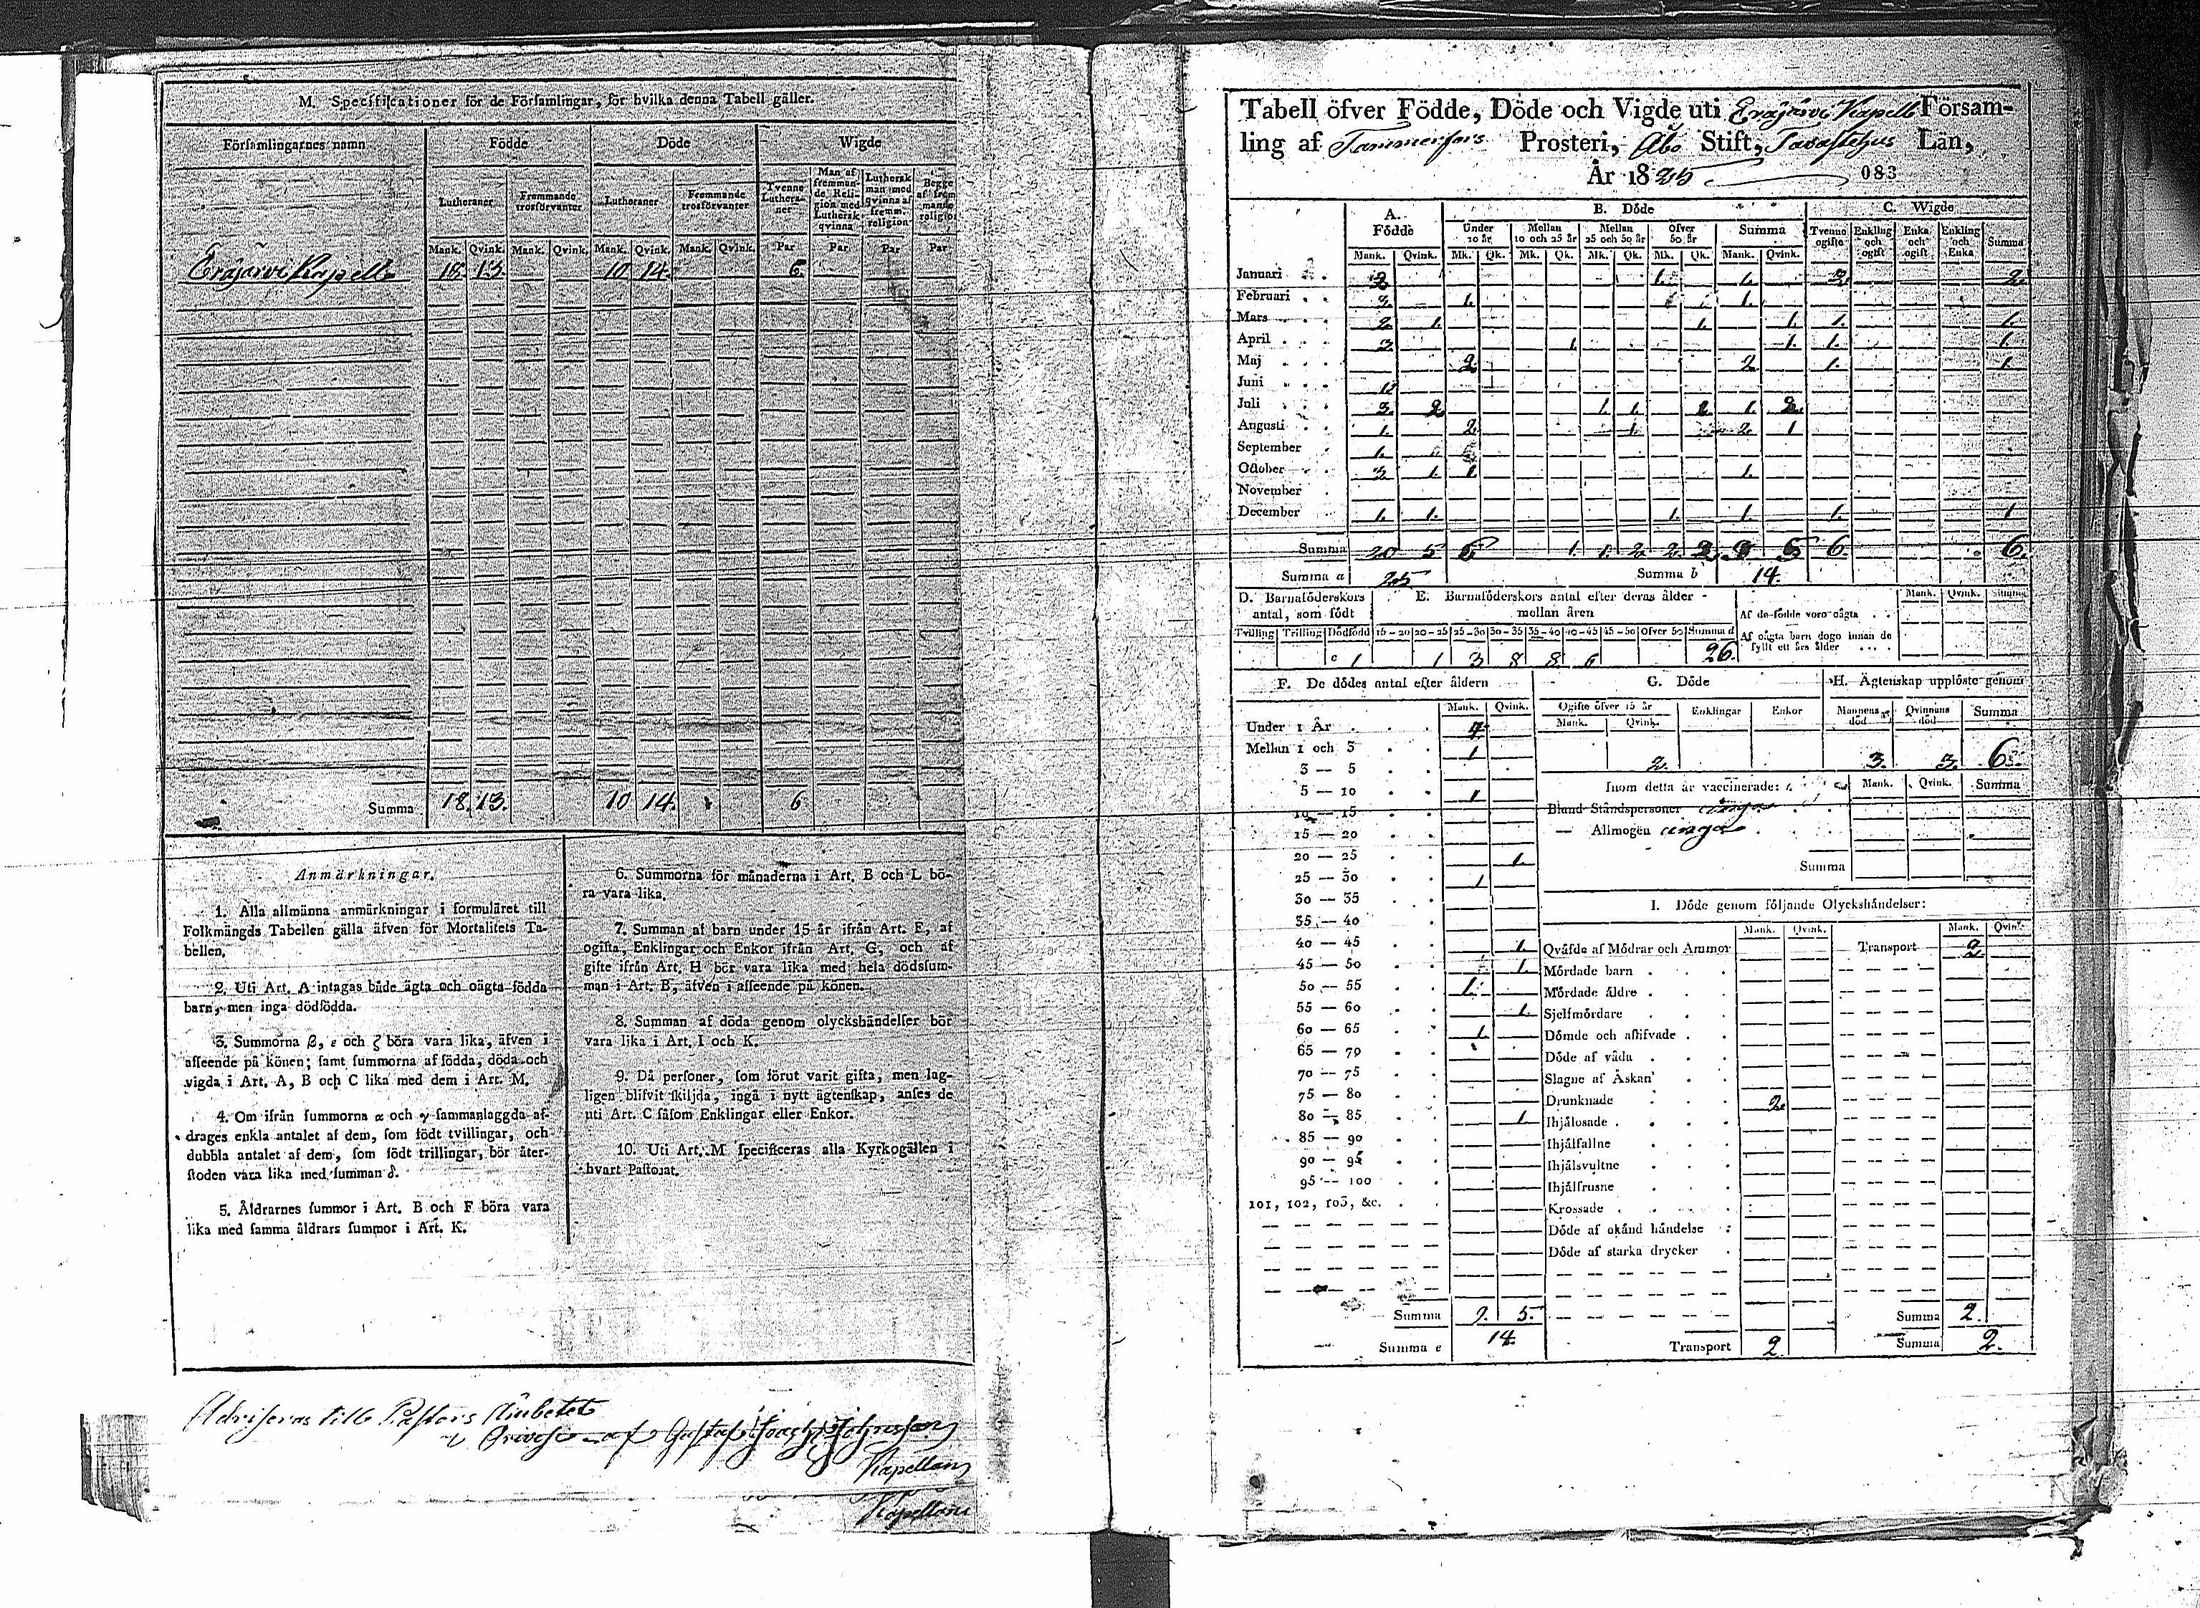 M. Specifikationer för de Församlingar, för hvilka denna Tabell gäller.
Församlingarnes namn
Födde
Döde
Wigde
Lutheraner
Frammande trosförvanter
Lutheraner
Frammande trosförvanter
Tvenne Lutheraner
Man af fremmande Religion med Luthersk qvinna
Luthersk man med qvinna af fremm. religion
Begge af fremmande religion
Mank. Qvink. Mank. Qvink. Mank. Qvink. Mank. Qvink. Par Par Par Par
Eräjärvi Kapell 18. 13. 10 14. 6.
Summa 18. 13. 10 14. 6
Anmärkningar.
1. Alla allmänna anmärkningar i formuläret till
Folkmängds Tabellen gälla äfven för Mortalitets Ta-
bellen.
2. Uti Art. A intagas både ägta och oägta födda
barn, men inga dödfödda.
3. Summorna β, ε och ζ böra vara lika, äfven i
afseende på könen; samt summorna af födda, döda och
vigda i Art. A, B och C lika med dem i Art. M.
4. Om ifrån summorna α och γ sammanlaggda af-
drages enkla antalet af dem, som födt tvillingar, och
dubbla antalet af dem, som födt trillingar, bör åter-
stoden vara lika med summan δ.
5. Åldrarnes summor i Art. B och F böra vara
lika med samma åldrars summor i Art. K.
6. Summorna för månaderna i Art. B och L bö-
ra vara lika.
7. Summan af barn under 15 år ifrån Art. E, af
ogifta, Enklingar och Enkor ifrån Art. G, och af
gifte ifrån Art. H bör vara lika med hela dödssum-
man i Art. B, äfven i afseende på könen.
8. Summan af döda genom olyckshändelser bör
vara lika i Art. I och K.
9. Då personer, som förut varit gifta, men lag-
ligen blifvit skiljda, ingå i nytt ägtenskap, anses de
uti Art. C såsom Enklingar eller Enkor.
10. Uti Art. M specificeras alla Kyrkogällen i
hvart Pastorat.
Kapellan
Kapellan
Tabell öfver Födde, Döde och Vigde uti Eräjärvi Kapell Församling
af Tammerfors Prosteri, Åbo Stift, Tavastehus Län,
År 1825 083
A. Födde
B. Döde
C. Wigde
Under 10 år
Mellan 10 och 25 år
Mellan 25 och 50 år
Öfver 50 år
Summa
Tvenne ogifte
Enkling och ogift
Enka och ogift
Enkling och Enka
Summa
Mank. Qvink. Mk. Qk. Mk. Qk. Mk. Qk. Mk. Qk. Mank. Qvink.
Januari 2 1. 1. 2 2.
Februari 3. 1. 1.
Mars 2 1. 1. 1. 1. 1.
April 3. 1 1. 1. 1.
Maj 2 2 1. 1.
Juni
Juli 3. 2 1. 1. 1.
Augusti 1. 2. 1. 2. 1
September 1.
October 3 1 1 1.
November
December 1. 1. 1. 1. 1. 1
Summa 20 5 6 1. 1. 2 2. 2 9 5 6. 6.
Summa a 25
Summa b 14.
D. Barnaföderskors antal, som födt
E. Barnaföderskors antal efter deras ålder mellan åren
Tvilling Trilling Dödfödd 15–20 20–25 25–30 30–35 35–40 40–45 45–50 Öfver 50 Summa d
c 1 1 3 8 8. 6 26.
Mank. Qvink. Summa
Af de födde voro oägta
Af oägta barn dogo innan de
fyllt ett års ålder
F. De dödes antal efter åldern
Mank. Qvink.
Under 1 År 4
Mellan 1 och 3 1
3 — 5
5 — 10 1
10 — 15
15 — 20
20 — 25 1.
25 — 30 1
30 — 35
35 — 40
40 — 45 1.
45 — 50 1.
50 — 55 1.
55 — 60 1.
60 — 65 1.
65 — 70
70 — 75
75 — 80
80 — 85 1
85 — 90
90 — 95
95 — 100
101, 102, 103, &c.
Summa 9. 5.
Summa e 14
G. Döde
Ogifte öfver 15 år
Mank. Qvink.
Enklingar
Enkor
2.
H. Ägtenskap upplöste genom
Mannens död
Qvinnans död
Summa
3. 3. 6.
Inom detta år vaccinerade:
Mank. Qvink. Summa
Bland Ståndspersoner inga
— Allmogen inga
Summa
I. Döde genom följande Olyckshändelser:
Mank. Qvink. Mank. Qvink.
Qväfde af Mödrar och Ammor
Transport 2
Mördade barn
Mördade äldre
Sjelfmördare
Dömde och aflifvade
Döde af våda
Slagne af Åskan
Drunknade 2.
Ihjälosade
Ihjälfallne
Ihjälsvultne
Ihjälfrusne
Krossade
Döde af okänd händelse
Döde af starka drycker
Summa 2.
Transport 2
Summa 2.